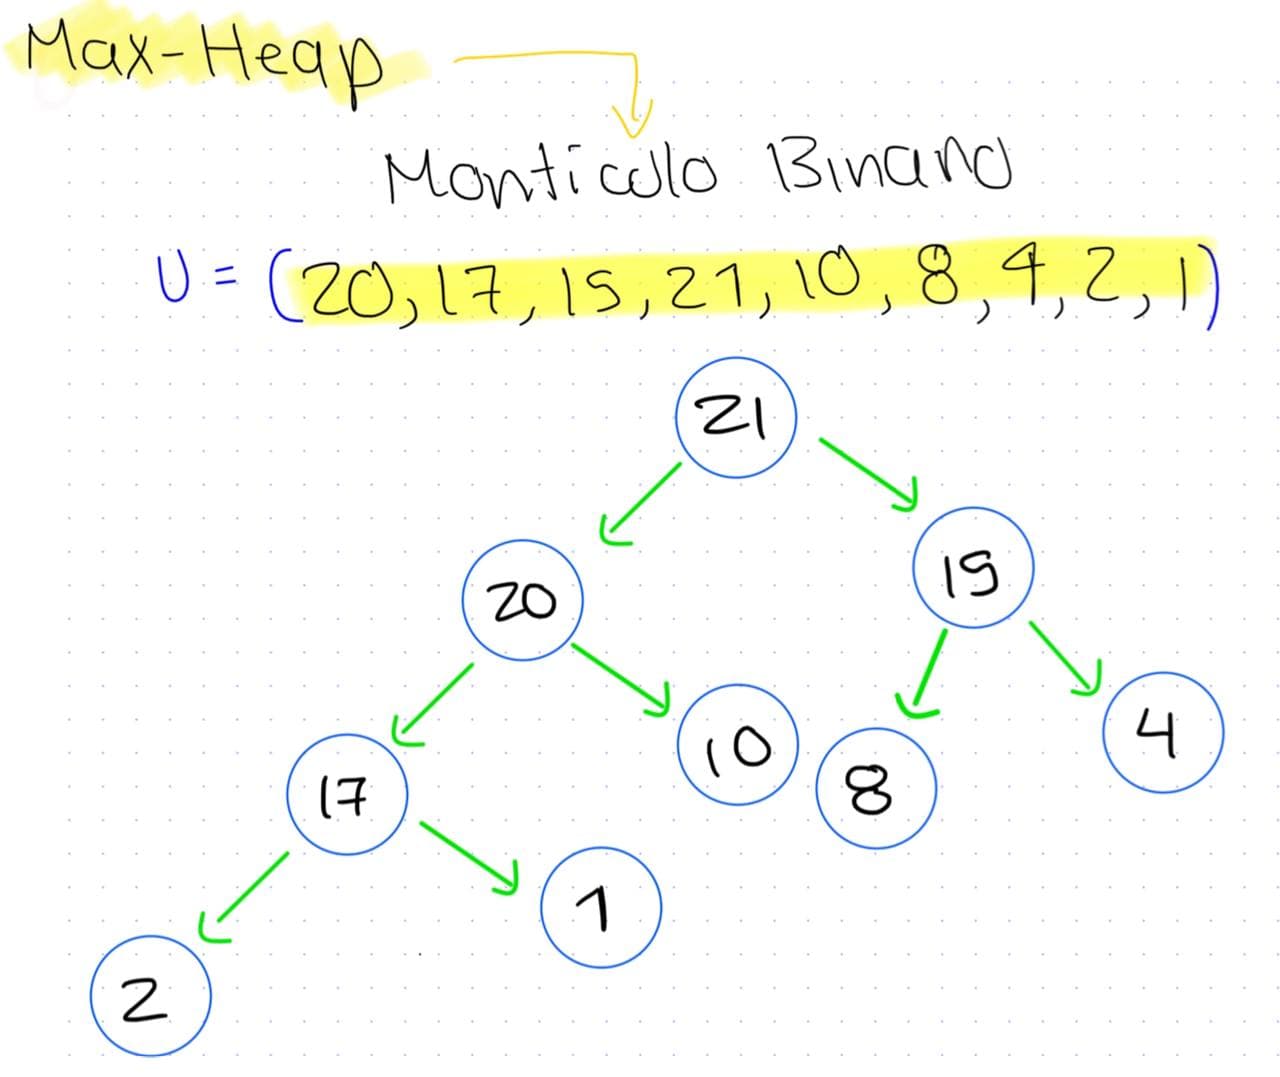 Max-Heap
Montículo Binario
U = (20, 17, 15, 21, 10, 8, 4, 2, 1)
21
20
15
17
10
8
4
2
1